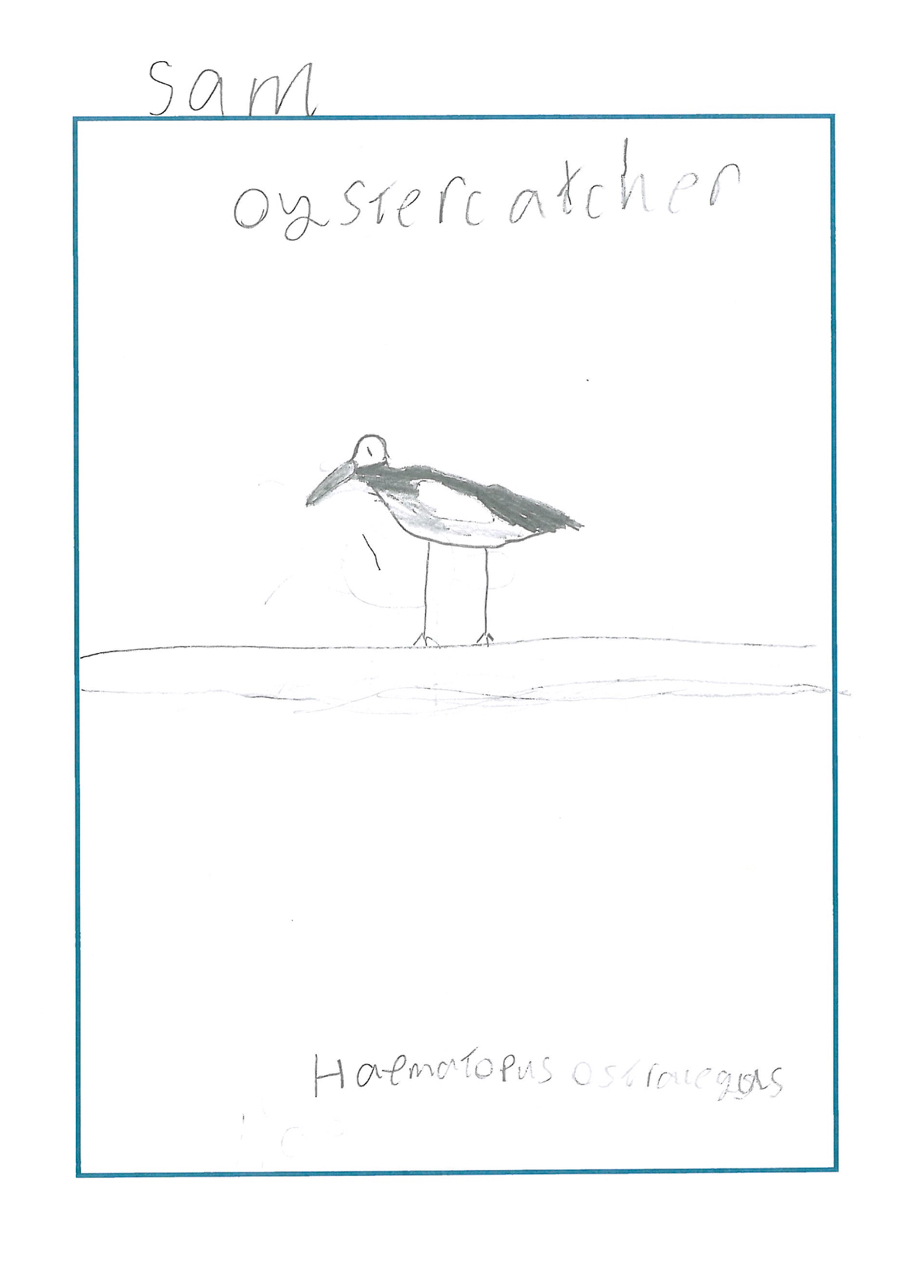 sam
oystercatcher
Haematopus ostralegus